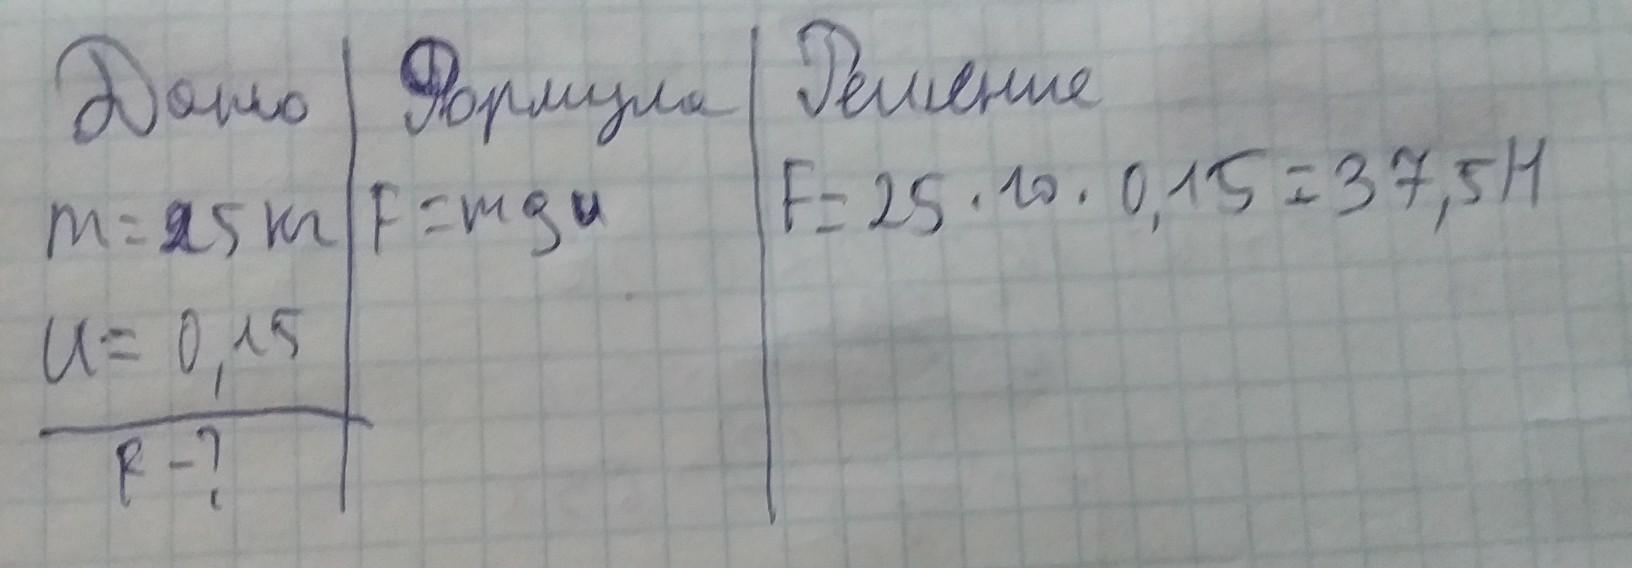 Дано
m = 25 кг
u = 0,15
F - ?
Формула
F = mgu
Решение
F = 25 · 10 · 0,15 = 37,5 Н